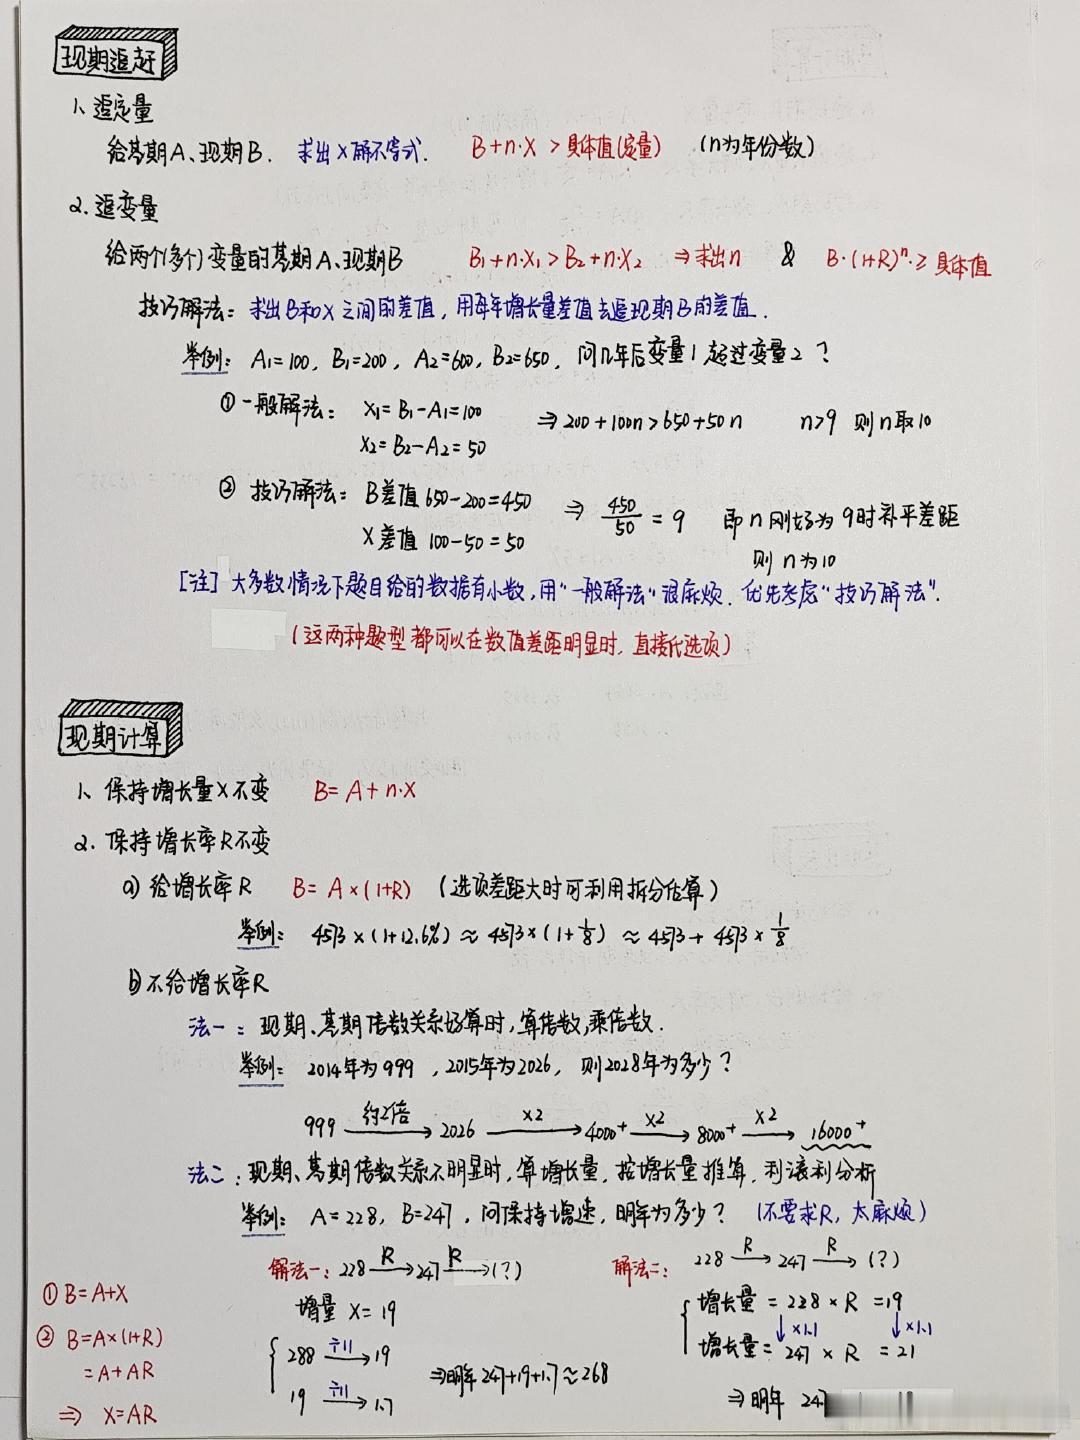 现期追赶
1、追定量
给基期A、现期B. 求出X解不等式. B+n·X > 具体值(定量) (n为年份数)
2. 追变量
给两个(多个)变量的基期A、现期B B₁+n·X₁>B₂+n·X₂ ⇒求出n & B·(1+R)ⁿ·≥具体值
技巧解法：求出B和X之间的差值，用每年增长量差值去追现期B的差值.
举例：A₁=100, B₁=200, A₂=600, B₂=650, 问几年后变量1超过变量2？
①一般解法：X₁=B₁-A₁=100 ⇒200+100n>650+50n n>9 则n取10
X₂=B₂-A₂=50
② 技巧解法：B差值 650-200=450 ⇒ 450/50 = 9 即n刚好为9时补平差距
X差值 100-50=50
则n为10
[注] 大多数情况下题目给的数据有小数，用"一般解法"很麻烦. 优先考虑"技巧解法".
(这两种题型都可以在数值差距明显时，直接代选项)
现期计算
1、保持增长量X不变 B=A+n·X
2. 保持增长率R不变
a) 给增长率R B= A×(1+R) (选项差距大时可利用拆分估算)
举例：4573×(1+12.6%)≈4573×(1+1/8)≈4573+4573×1/8
b)不给增长率R
法一：现期、基期倍数关系好算时，算倍数，乘倍数.
举例：2014年为999，2015年为2026，则2028年为多少？
999 约2倍→ 2026 ×2→ 4000⁺ ×2→ 8000⁺ ×2→ 16000⁺
法二：现期、基期倍数关系不明显时，算增长量，按增长量推算，利滚利分析
举例：A=228，B=247，问保持增速，明年为多少？ (不要求R，太麻烦)
解法一：228 R→ 247 R→ (?)
增量 X=19
288 ÷11→ 19
19 ÷11→ 1.7
⇒明年 247+19+1.7≈268
解法二：228 R→ 247 R→ (?)
增长量=228×R=19
↓×1.1 ↓×1.1
增长量=247×R=21
⇒明年 247
① B=A+X
② B=A×(1+R)
=A+AR
⇒ X=AR